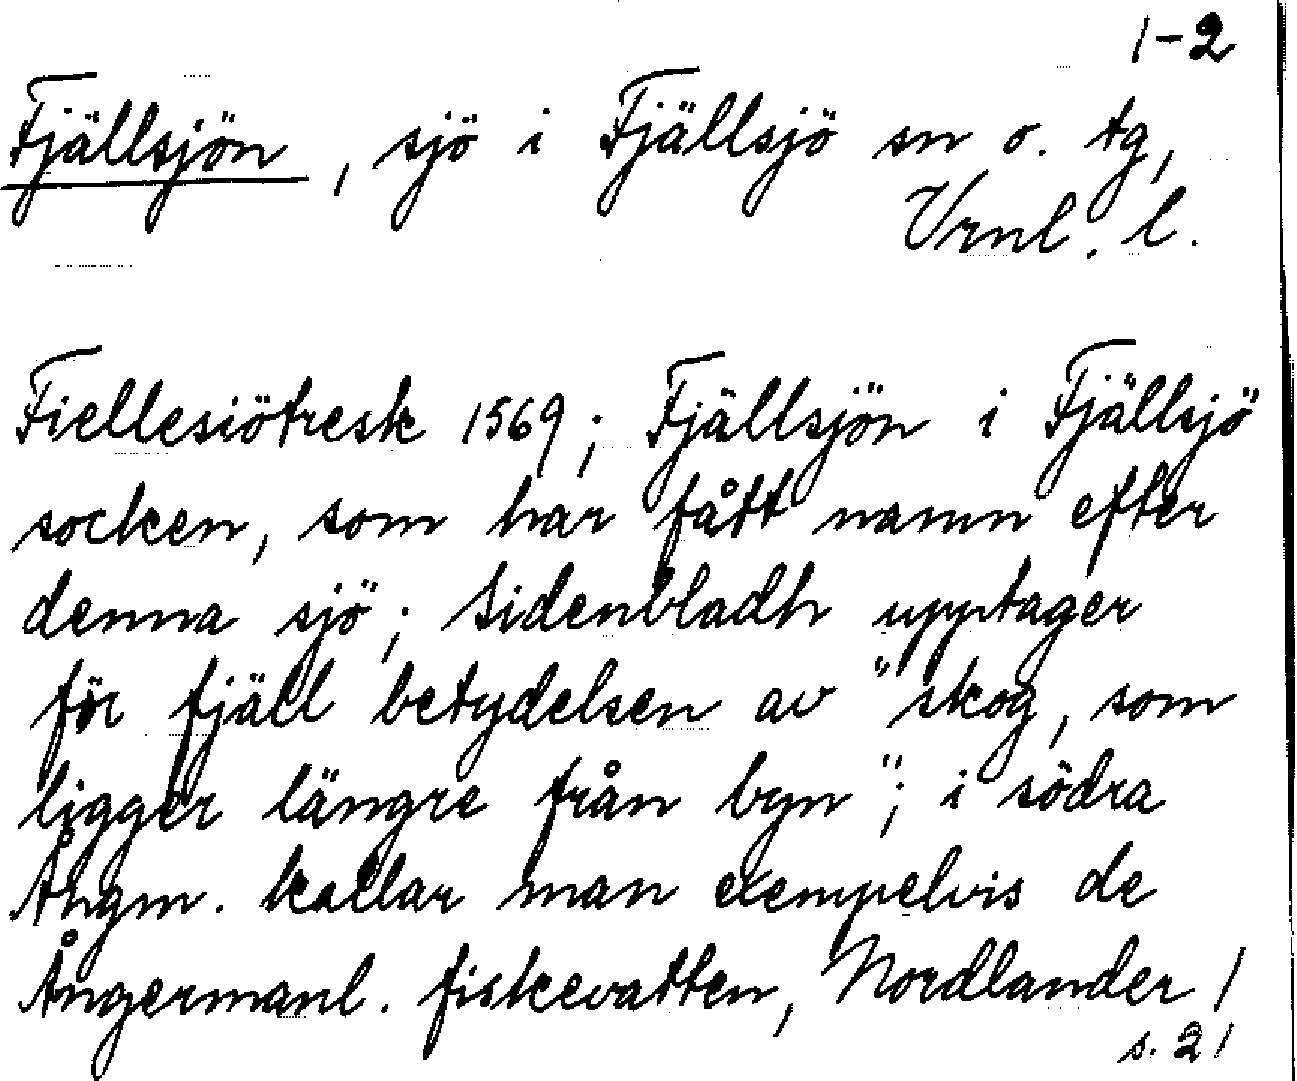 1-2
Fjällsjön, sjö i Fjällsjö sn o. tg,
Vrnl. l.
Fiellesiötresk 1569; Fjällsjön i Fjällsjö
socken, som har fått namn efter
denna sjö; Sidenbladh upptager
för fjäll betydelsen av "skog, som
ligger längre från byn"; i södra
Ångm. kallar man exempelvis de
Ångermanl. fiskevatten, Nordlander 1
s. 21